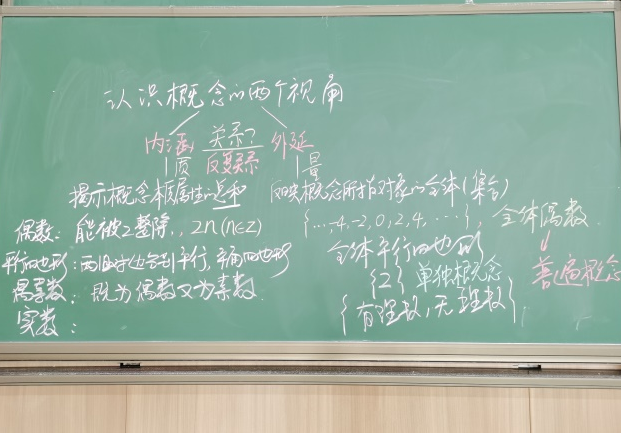 认识概念的两个视角
内涵 关系? 外延
反变关系
质 量
揭示概念本质属性的总和 反映概念所指对象的全体(集合)
偶数: 能被2整除, 2n(n∈Z) {…,-4,-2,0,2,4,…}, 全体偶数
平行四边形: 两组对边分别平行, 平面四边形 全体平行四边形 普遍概念
偶素数: 既为偶数又为素数 {2} 单独概念
实数: {有理数, 无理数}